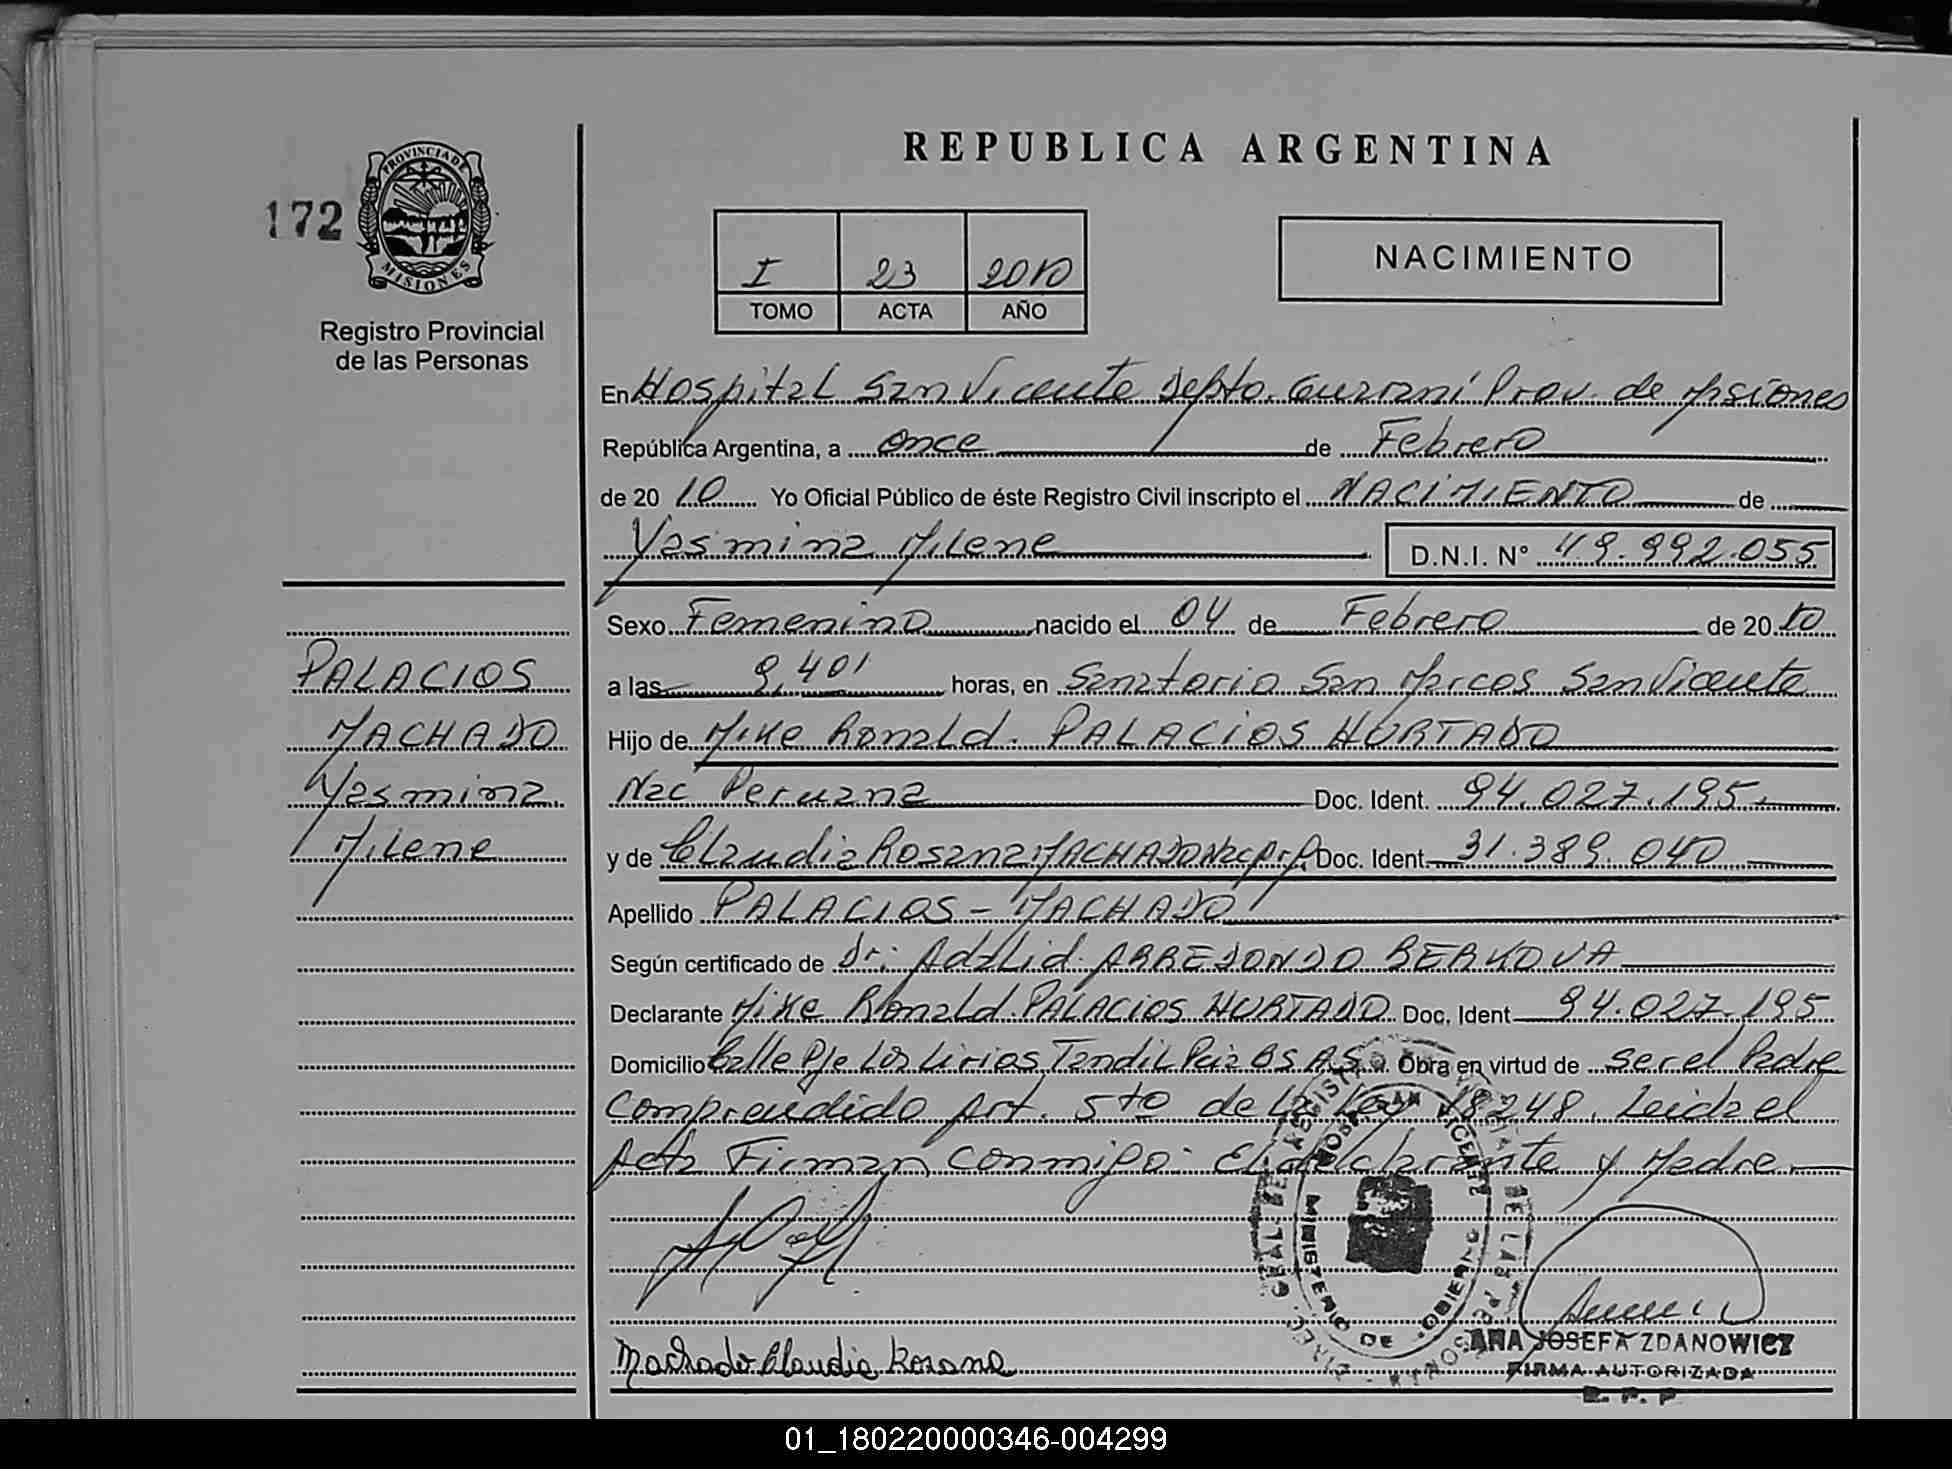 REPUBLICA ARGENTINA
172
PROVINCIA DE
MISIONES
Registro Provincial
de las Personas
I 23 2010
TOMO ACTA AÑO
NACIMIENTO
En Hospital San Vicente Depto. Guaraní Prov. de Misiones
República Argentina, a once de Febrero
de 20 10 Yo Oficial Público de éste Registro Civil inscripto el NACIMIENTO de
Yasmina Milene D.N.I. N° 49.992.055
Sexo Femenino nacido el 04 de Febrero de 20 10
a las 9,40' horas, en Sanatorio San Marcos San Vicente
Hijo de Mike Ronald. PALACIOS HURTADO
Nac Peruana Doc. Ident. 94.027.195
y de Claudia Rosana MACHADO Nac Arg. Doc. Ident. 31.389.040
Apellido PALACIOS - MACHADO
Según certificado de Dr: Adalid. ARREDONDO BERKOVA
Declarante Mike Ronald. PALACIOS HURTADO Doc. Ident 94.027.195
Domicilio Calle Pje Los Lirios Tandil Pcia BS AS. Obra en virtud de ser el Padre
Comprendido Art. 5to de la Ley 18248. Leida el
Acta Firman conmigo: El declarante y Madre
PALACIOS
MACHADO
Yasmina
Milene
Machado Claudia Rosana
MINISTERIO DE GOBIERNO
ANA JOSEFA ZDANOWICZ
FIRMA AUTORIZADA
R. P. P
01_180220000346-004299